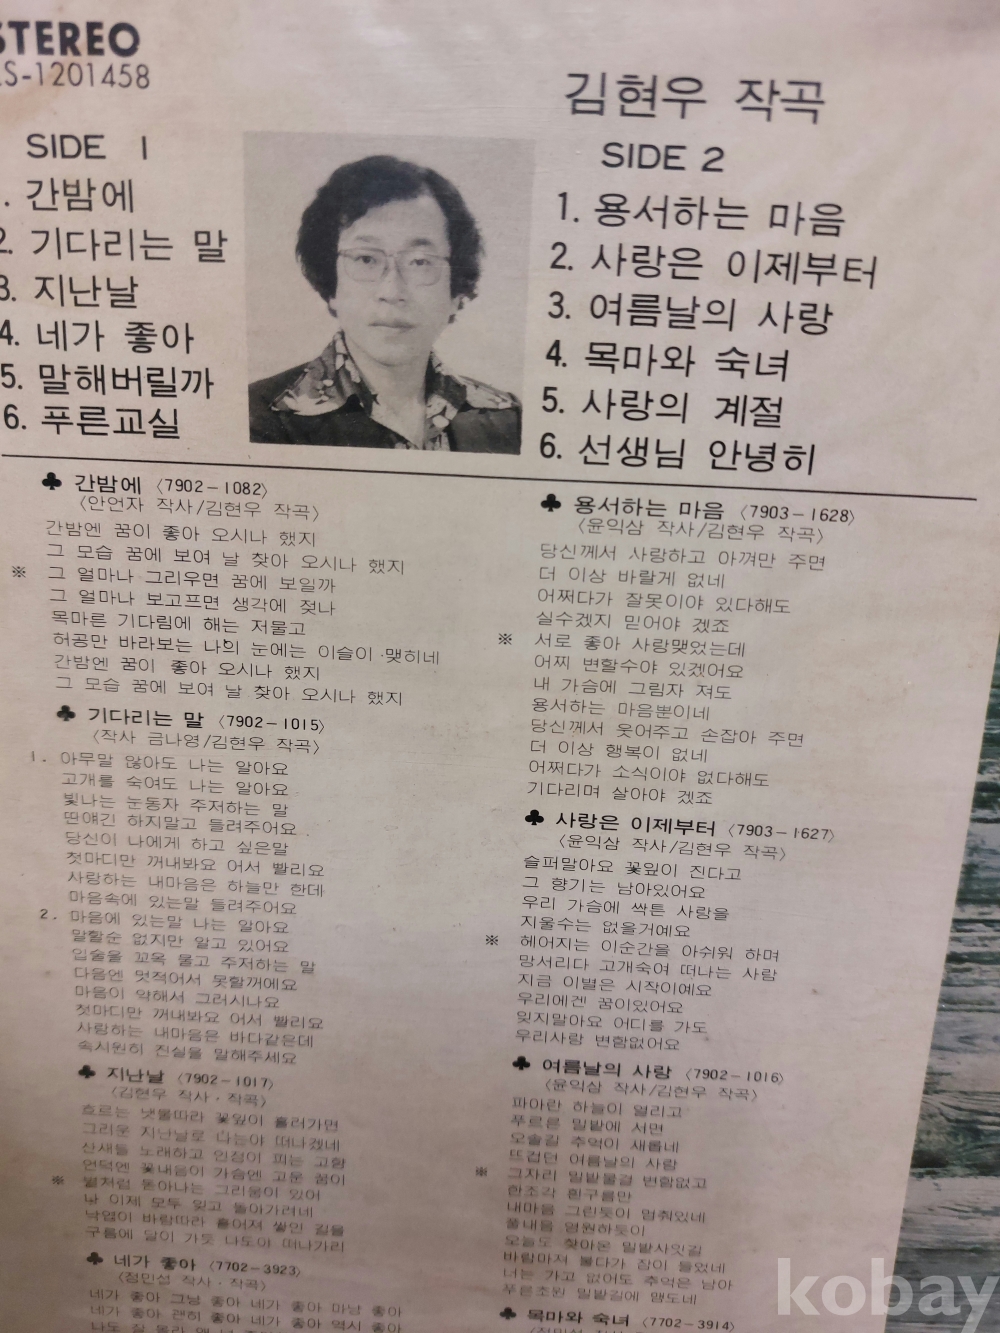 STEREO
S-1201458
김현우 작곡
SIDE 1
. 간밤에
2. 기다리는 말
3. 지난날
4. 네가 좋아
5. 말해버릴까
6. 푸른교실
SIDE 2
1. 용서하는 마음
2. 사랑은 이제부터
3. 여름날의 사랑
4. 목마와 숙녀
5. 사랑의 계절
6. 선생님 안녕히
♣ 간밤에 〈7902-1082〉
〈안언자 작사/김현우 작곡〉
간밤엔 꿈이 좋아 오시나 했지
그 모습 꿈에 보여 날 찾아 오시나 했지
※ 그 얼마나 그리우면 꿈에 보일까
그 얼마나 보고프면 생각에 젖나
목마른 기다림에 해는 저물고
허공만 바라보는 나의 눈에는 이슬이 맺히네
간밤엔 꿈이 좋아 오시나 했지
그 모습 꿈에 보여 날 찾아 오시나 했지
♣ 기다리는 말 〈7902-1015〉
〈작사 금나영/김현우 작곡〉
1. 아무말 않아도 나는 알아요
고개를 숙여도 나는 알아요
빛나는 눈동자 주저하는 말
딴얘긴 하지말고 들려주어요
당신이 나에게 하고 싶은말
첫마디만 꺼내봐요 어서 빨리요
사랑하는 내마음은 하늘만 한데
마음속에 있는말 들려주어요
2. 마음에 있는말 나는 알아요
말할순 없지만 알고 있어요
입술을 꼬옥 물고 주저하는 말
다음엔 멋적어서 못할꺼예요
마음이 약해서 그러시나요
첫마디만 꺼내봐요 어서 빨리요
사랑하는 내마음은 바다같은데
속시원히 진실을 말해주세요
♣ 지난날 〈7902-1017〉
〈김현우 작사·작곡〉
흐르는 냇물따라 꽃잎이 흘러가면
그리운 지난날로 나는야 떠나겠네
산새들 노래하고 인정이 피는 고향
언덕엔 꽃내음이 가슴엔 고운 꿈이
※ 별처럼 돋아나는 그리움이 있어
난 이제 모두 잊고 돌아가려네
낙엽이 바람따라 흩어져 쌓인 길을
구름에 달이 가듯 나도야 떠나가리
♣ 네가 좋아 〈7702-3923〉
〈정민섭 작사·작곡〉
네가 좋아 그냥 좋아 네가 좋아 마냥 좋아
네가 좋아 괜히 좋아 네가 좋아 역시 좋아
♣ 용서하는 마음 〈7903-1628〉
〈윤익삼 작사/김현우 작곡〉
당신께서 사랑하고 아껴만 주면
더 이상 바랄게 없네
어쩌다가 잘못이야 있다해도
실수겠지 믿어야 겠죠
※ 서로 좋아 사랑맺었는데
어찌 변할수야 있겠어요
내 가슴에 그림자 져도
용서하는 마음뿐이네
당신께서 웃어주고 손잡아 주면
더 이상 행복이 없네
어쩌다가 소식이야 없다해도
기다리며 살아야 겠죠
♣ 사랑은 이제부터 〈7903-1627〉
〈윤익삼 작사/김현우 작곡〉
슬퍼말아요 꽃잎이 진다고
그 향기는 남아있어요
우리 가슴에 싹튼 사랑을
지울수는 없을거예요
※ 헤어지는 이순간을 아쉬워 하며
망서리다 고개숙여 떠나는 사람
지금 이별은 시작이예요
우리에겐 꿈이있어요
잊지말아요 어디를 가도
우리사랑 변함없어요
♣ 여름날의 사랑 〈7902-1016〉
〈윤익삼 작사/김현우 작곡〉
파아란 하늘이 열리고
푸르른 밀밭에 서면
오솔길 추억이 새롭네
뜨겁던 여름날의 사랑
※ 그자리 밀밭물결 변함없고
한조각 흰구름만
내마음 그린듯이 멈춰있네
풀내음 영원하듯이
오늘도 찾아온 밀밭사잇길
바람마저 불다가 잠이 들었네
너는 가고 없어도 추억은 남아
푸른초원 밀밭길에 맴도네
♣ 목마와 숙녀 〈7702-3914〉
kobay